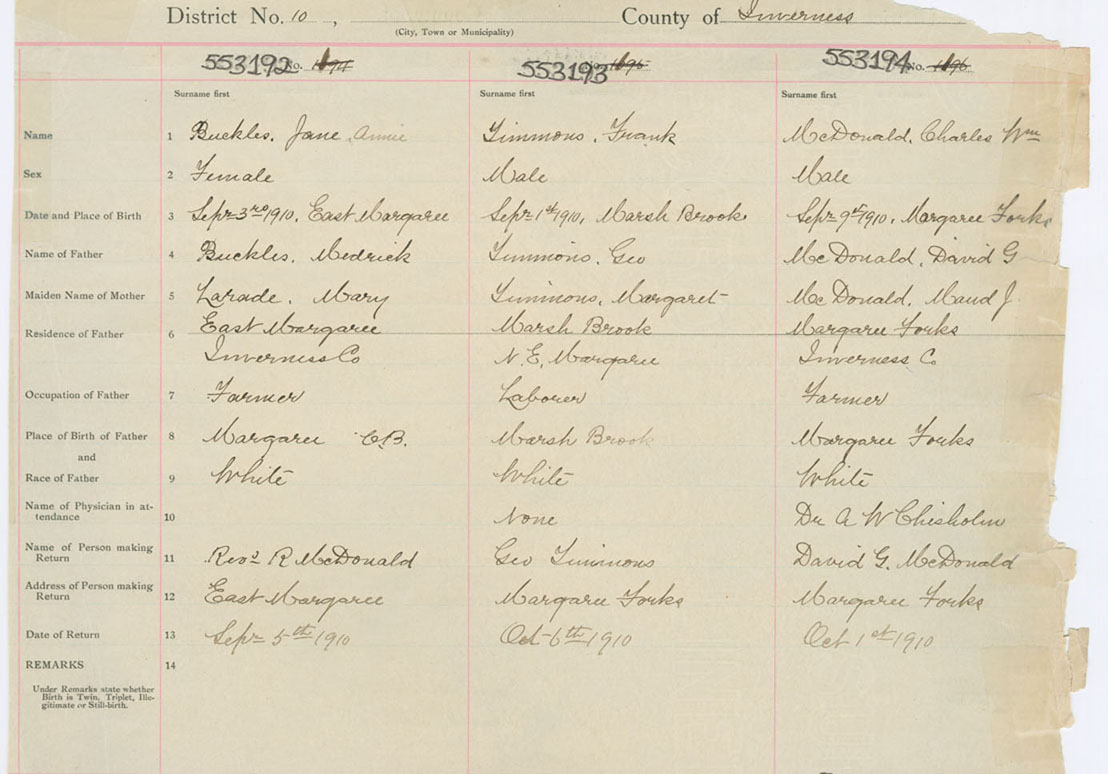 District No. 10 , County of Inverness
(City, Town or Municipality)
553192 No. 553193 No. 553194 No.
Surname first Surname first Surname first
Name 1 Buckles, Jane Annie Timmons, Frank McDonald, Charles Wm
Sex 2 Female Male Male
Date and Place of Birth 3 Sept 3rd 1910, East Margaree Sept 1st 1910, Marsh Brook Sept 9th 1910, Margaree Forks
Name of Father 4 Buckles, Medrick Timmons, Geo McDonald, David G
Maiden Name of Mother 5 Larade, Mary Timmons, Margaret McDonald, Maud J
Residence of Father 6 East Margaree Marsh Brook Margaree Forks
Inverness Co N. E. Margaree Inverness Co
Occupation of Father 7 Farmer Laborer Farmer
Place of Birth of Father 8 Margaree C.B. Marsh Brook Margaree Forks
and
Race of Father 9 White White White
Name of Physician in at-
tendance 10 None Dr A W Chisholm
Name of Person making
Return 11 Revd R McDonald Geo Timmons David G. McDonald
Address of Person making
Return 12 East Margaree Margaree Forks Margaree Forks
Date of Return 13 Sept 5th 1910 Oct 6th 1910 Oct 1st 1910
REMARKS 14
Under Remarks state whether
Birth is Twin, Triplet, Ille-
gitimate or Still-birth.